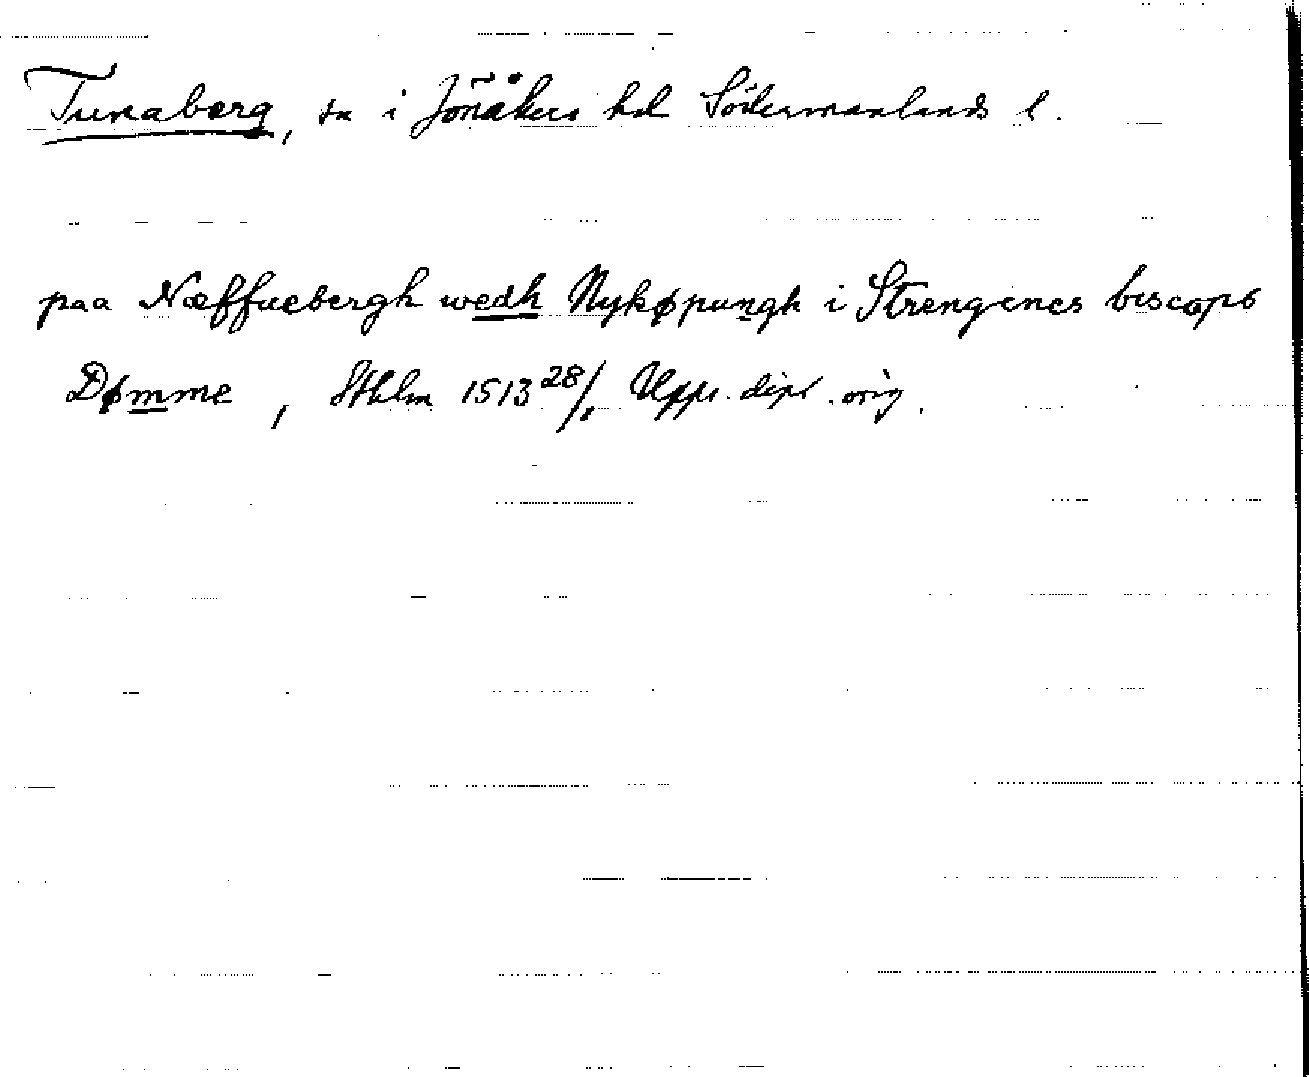 Tunaberg, sn i Jönåkers hd Södermanlands l.
paa Næffuebergh wedh Nykøpungh i Strengenes biscops
Dømme, Sthlm 1513 28/1 Upps. dipl. orig.